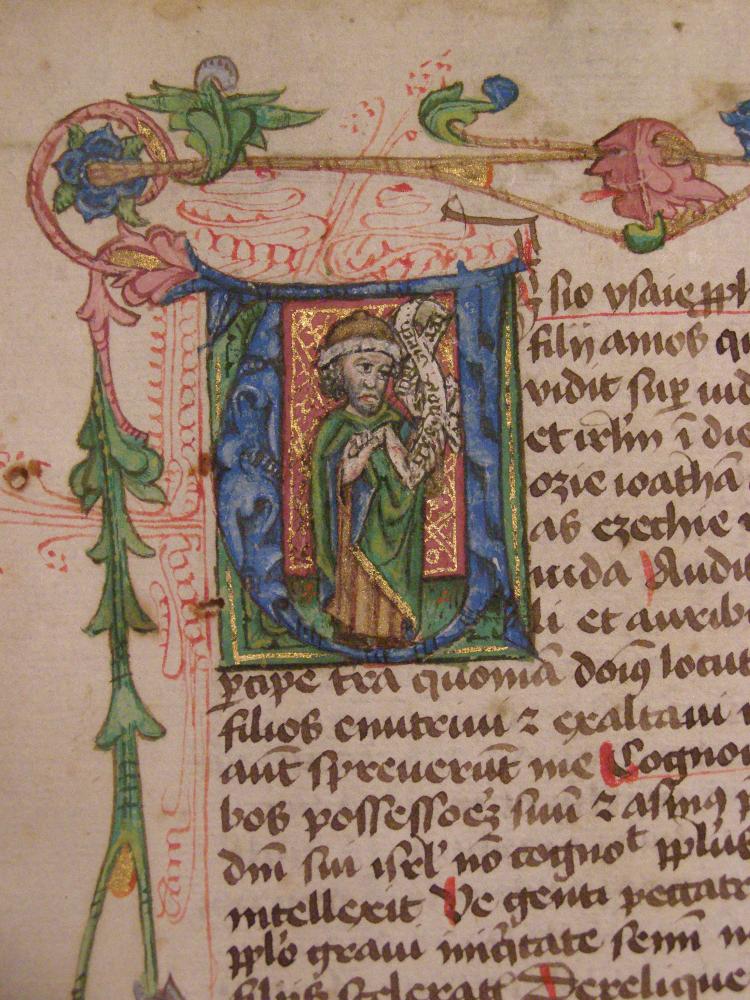 V
sio ysaie ꝓph
filij amos qu
vidit suꝑ iud
et irl̄m ī die
ozie ioathā
as ezechie
iuda Audit
li et aurib
ꝑcipe t̄ra quoniā dn̄s locut
filios enutriui ⁊ exaltaui
aūt spreuerūt me Cogno
bos possessorē suū ⁊ asinꝰ p
dn̄i sui isrl̄ nō cognoᵗ ppl̄us
intellexit Ve genti peccatr
ppl̄o graui iniqͥtate semī
filijs scelerat Derelique